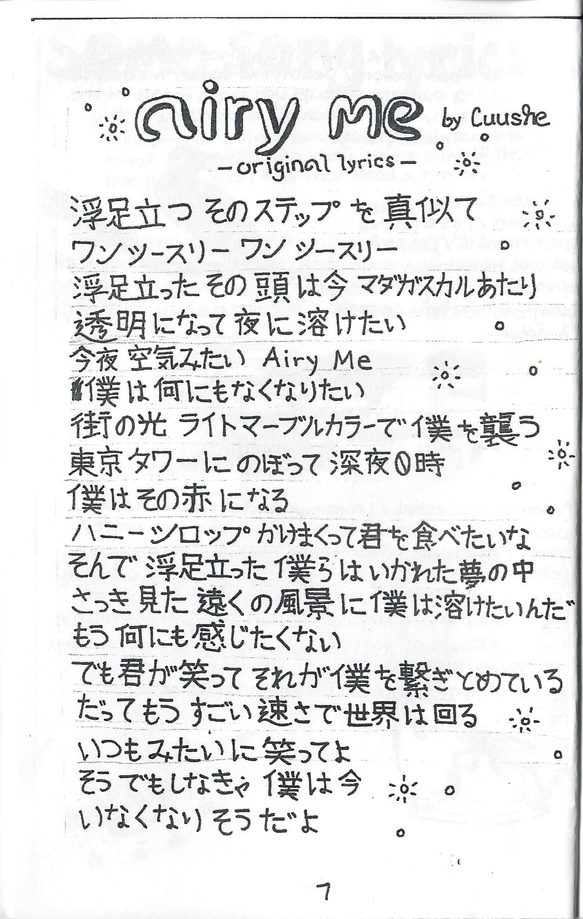 airy me by Cuushe
- original lyrics -
浮足立つ そのステップ を 真似て
ワン ツースリー ワン ツースリー
浮足立った その 頭は今 マダガスカルあたり
透明になって 夜に 溶けたい
今夜 空気みたい Airy Me
僕は何にもなくなりたい
街の光 ライトマーブルカラーで 僕を襲う
東京タワーに のぼって 深夜0時
僕は その赤 になる
ハニーシロップ かけまくって君を食べたいな
そんで 浮足立った 僕らは いかれた夢の中
さっき 見た 遠くの風景に 僕は溶けたいんだ
もう 何にも感じたくない
でも君が笑って それが僕を繋ぎとめている
だってもう すごい速さで世界は回る
いつもみたいに 笑ってよ
そうでもしなきゃ 僕は今
いなくなりそうだよ
7